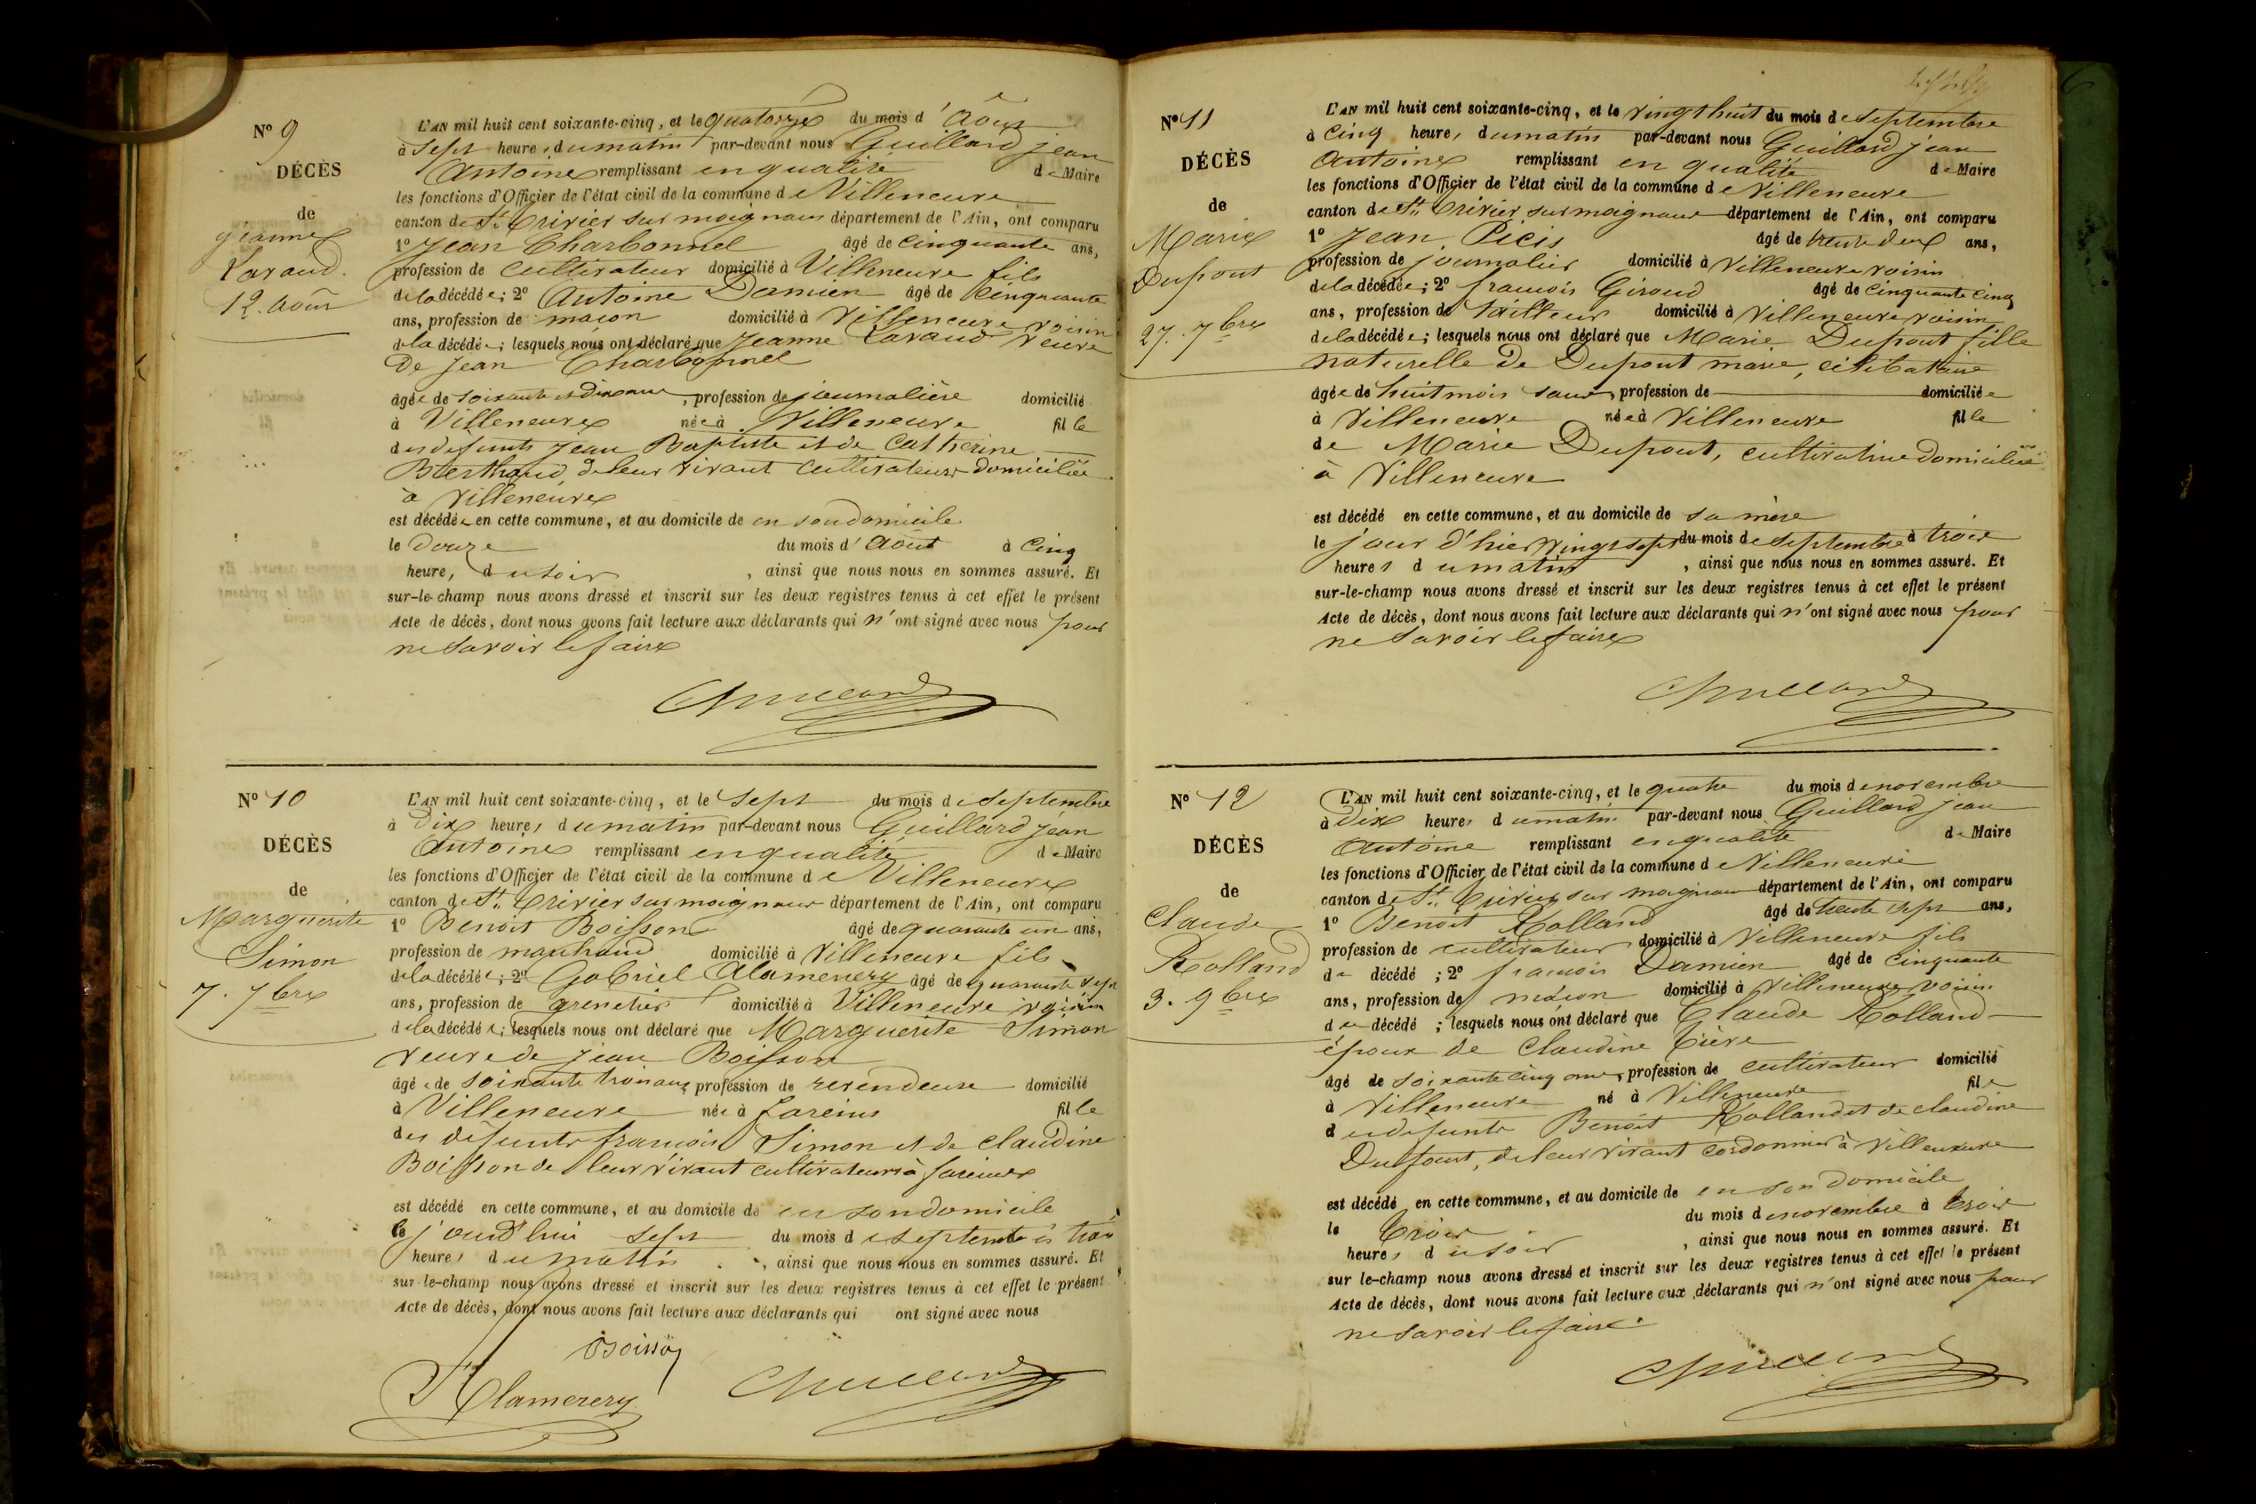 Nº 9
DÉCÈS
de
Jeanne
Ravaud.
12. août
L'AN mil huit cent soixante-cinq, et le quatorze du mois d'Août
à sept heures du matin par-devant nous Guillard jean
Antoine remplissant en qualité de Maire
les fonctions d'Officier de l'état civil de la commune de Villeneuve
canton de St. Trivier sur moignans département de l'Ain, ont comparu
1º Jean Charbonnel âgé de cinquante ans,
profession de cultivateur domicilié à Villeneuve fils
de la décédée; 2º Antoine Damien âgé de cinquante
ans, profession de maçon domicilié à Villeneuve voisin
de la décédée; lesquels nous ont déclaré que Jeanne Ravaud veuve
De Jean Charbonnel
âgée de soixante et dix ans, profession de journalière domicilié
à Villeneuve née à Villeneuve fille
des defunts Jean Baptiste et de Catherine
Berthaud, de leur vivant cultivateurs domiciliés
à Villeneuve
est décédée en cette commune, et au domicile de en son domicile
le Douze du mois d'Août à Cinq
heure, du soir, ainsi que nous nous en sommes assuré. Et
sur-le-champ nous avons dressé et inscrit sur les deux registres tenus à cet effet le présent
Acte de décès, dont nous avons fait lecture aux déclarants qui n'ont signé avec nous pour
ne savoir le faire
Guillard
Nº 10
DÉCÈS
de
Marguerite
Simon
7. 7bre
L'AN mil huit cent soixante-cinq, et le sept du mois de septembre
à Dix heures du matin par-devant nous Guillard jean
Antoine remplissant en qualité de Maire
les fonctions d'Officier de l'état civil de la commune de Villeneuve
canton de St. Trivier sur moignans département de l'Ain, ont comparu
1º Benoit Boisson âgé de quarante un ans,
profession de marchand domicilié à Villeneuve fils
de la décédée; 2º Gabriel Alamercery âgé de quarante sept
ans, profession de grenetier domicilié à Villeneuve voisin
de la décédée; lesquels nous ont déclaré que Marguerite Simon
veuve de Jean Boisson
âgée de soixante trois ans, profession de revendeuse domicilié
à Villeneuve née à fareins fille
des défunts françois Simon et de Claudine
Boisson de leur vivant cultivateurs à fareins
est décédé en cette commune, et au domicile de en son domicile
le jourd'hui sept du mois de septembre à trois
heures du matin, ainsi que nous nous en sommes assuré. Et
sur-le-champ nous avons dressé et inscrit sur les deux registres tenus à cet effet le présent
Acte de décès, dont nous avons fait lecture aux déclarants qui ont signé avec nous
Boisson
Guillard
Nº 11
DÉCÈS
de
Marie
Dupont
27. 7bre
L'AN mil huit cent soixante-cinq, et le vingt huit du mois de septembre
à cinq heures du matin par-devant nous Guillard jean
Antoine remplissant en qualité de Maire
les fonctions d'Officier de l'état civil de la commune de Villeneuve
canton de St. Trivier sur moignans département de l'Ain, ont comparu
1º Jean Picis âgé de trente deux ans,
profession de journalier domicilié à Villeneuve voisin
de la décédée; 2º françois Giroud âgé de cinquante cinq
ans, profession de tailleur domicilié à Villeneuve voisin
de la décédée; lesquels nous ont déclaré que Marie Dupont fille
naturelle de Dupont marie, célibataire
âgée de huit mois, profession de domiciliée
à Villeneuve née à Villeneuve fille
de Marie Dupont, cultivatrice domiciliée
à Villeneuve
est décédé en cette commune, et au domicile de sa mère
le jour d'hier vingt sept du mois de septembre à trois
heures du matin, ainsi que nous nous en sommes assuré. Et
sur-le-champ nous avons dressé et inscrit sur les deux registres tenus à cet effet le présent
Acte de décès, dont nous avons fait lecture aux déclarants qui n'ont signé avec nous pour
ne savoir le faire
Guillard
Nº 12
DÉCÈS
de
Claude
Rolland
3. 9bre
L'AN mil huit cent soixante-cinq, et le quatre du mois de novembre
à Dix heures du matin par-devant nous Guillard jean
Antoine remplissant en qualité de Maire
les fonctions d'Officier de l'état civil de la commune de Villeneuve
canton de St. Trivier sur moignans département de l'Ain, ont comparu
1º Benoit Rolland âgé de trente sept ans,
profession de cultivateur domicilié à Villeneuve fils
du décédé; 2º françois Damien âgé de cinquante
ans, profession de maçon domicilié à Villeneuve voisin
du décédé; lesquels nous ont déclaré que Claude Rolland
époux de Claudine
âgé de soixante cinq ans, profession de cultivateur domicilié
à Villeneuve né à Villeneuve fils
des defunts Benoit Rolland et de Claudine
Dufourt, de leur vivant cordonnier à Villeneuve
est décédé en cette commune, et au domicile de en son domicile
le trois du mois de novembre à trois
heures du soir, ainsi que nous nous en sommes assuré. Et
sur le-champ nous avons dressé et inscrit sur les deux registres tenus à cet effet le présent
Acte de décès, dont nous avons fait lecture aux déclarants qui n'ont signé avec nous pour
ne savoir le faire.
Guillard